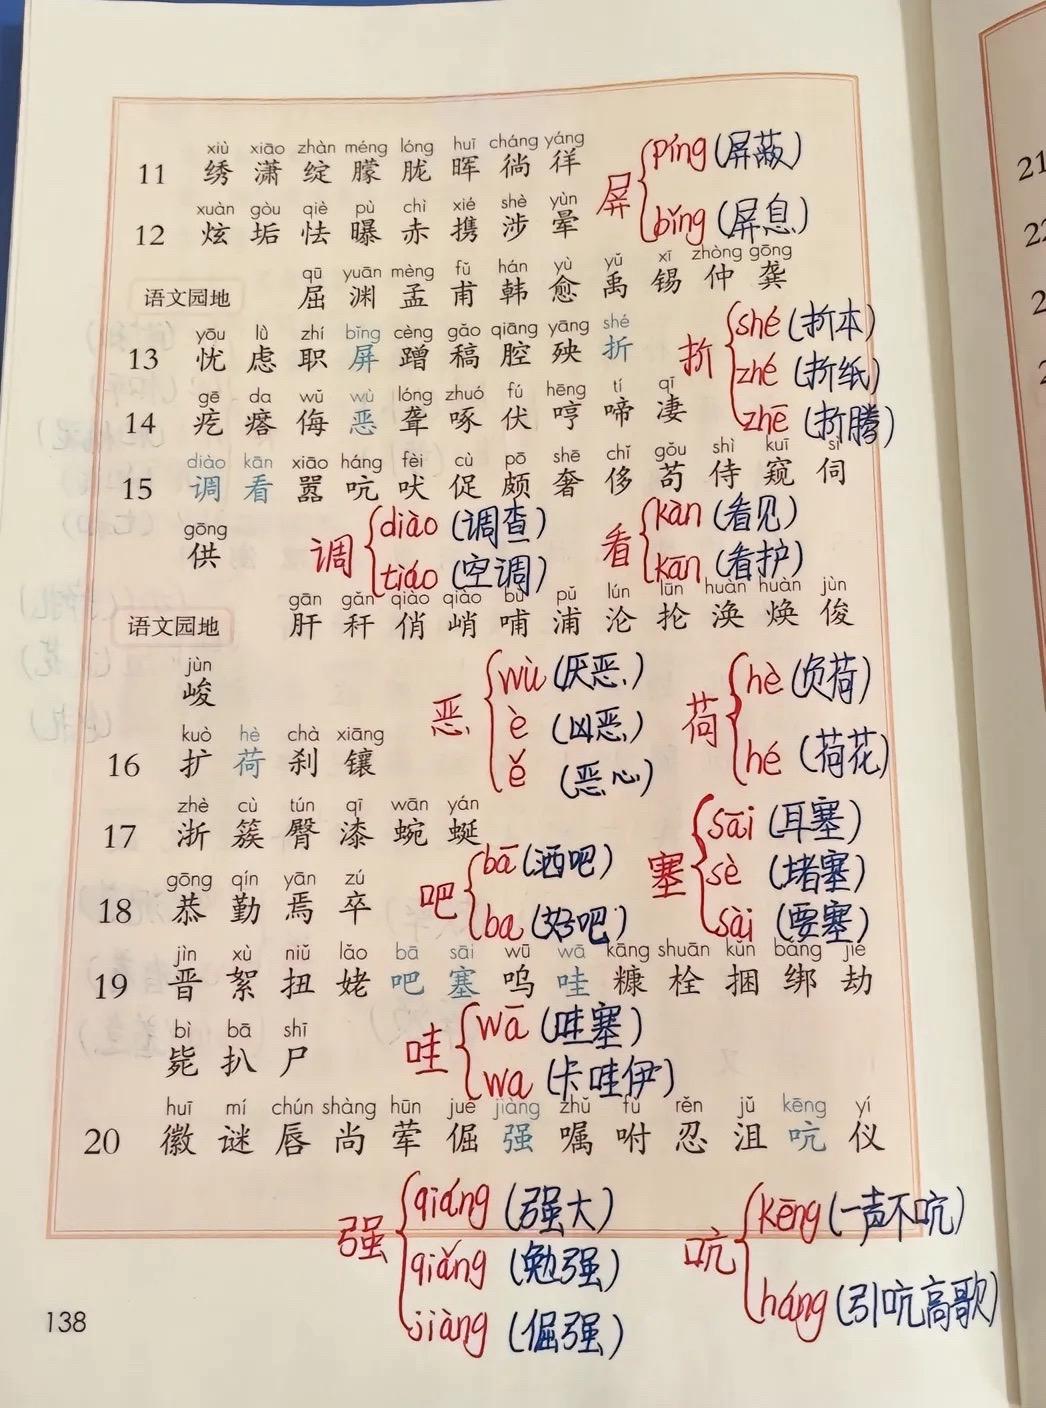 xiù xiāo zhàn méng lóng huī cháng yáng
11 绣 潇 绽 朦 胧 晖 徜 徉
屏 píng (屏蔽)
bǐng (屏息)
xuàn gòu qiè pù chì xié shè yùn
12 炫 垢 怯 曝 赤 携 涉 晕
qū yuān mèng fǔ hán yù yǔ xī zhòng gōng
语文园地 屈 渊 孟 甫 韩 愈 禹 锡 仲 龚
yōu lù zhí bǐng cèng gǎo qiāng yāng shé
13 忧 虑 职 屏 蹭 稿 腔 殃 折
折 shé (折本)
zhé (折纸)
zhē (折腾)
gē da wǔ wù lóng zhuó fú hēng tí qī
14 疙 瘩 侮 恶 聋 啄 伏 哼 啼 凄
diào kān xiāo háng fèi cù pō shē chǐ gǒu shì kuī sì
15 调 看 嚣 吭 吠 促 颇 奢 侈 苟 侍 窥 伺
gōng
供
调 diào (调查)
tiáo (空调)
看 kàn (看见)
kān (看护)
gān gǎn qiào qiào bǔ pǔ lún lūn huàn huàn jùn
语文园地 肝 秆 俏 峭 哺 浦 沦 抡 涣 焕 俊
jùn
峻
恶 wù (厌恶)
è (凶恶)
ě (恶心)
荷 hè (负荷)
hé (荷花)
kuò hè chà xiāng
16 扩 荷 刹 镶
zhè cù tún qī wān yán
17 浙 簇 臀 漆 蜿 蜒
吧 bā (酒吧)
ba (好吧)
塞 sāi (耳塞)
sè (堵塞)
sài (要塞)
gōng qín yān zú
18 恭 勤 焉 卒
jìn xù niǔ lǎo bā sāi wū wā kāng shuān kǔn bǎng jié
19 晋 絮 扭 姥 吧 塞 呜 哇 糠 栓 捆 绑 劫
bì bā shī
毙 扒 尸
哇 wā (哇塞)
wa (卡哇伊)
huī mí chún shàng hūn jué jiàng zhǔ fù rěn jǔ kēng yí
20 徽 谜 唇 尚 荤 倔 强 嘱 咐 忍 沮 吭 仪
强 qiáng (强大)
qiǎng (勉强)
jiàng (倔强)
吭 kēng (一声不吭)
háng (引吭高歌)
138
21